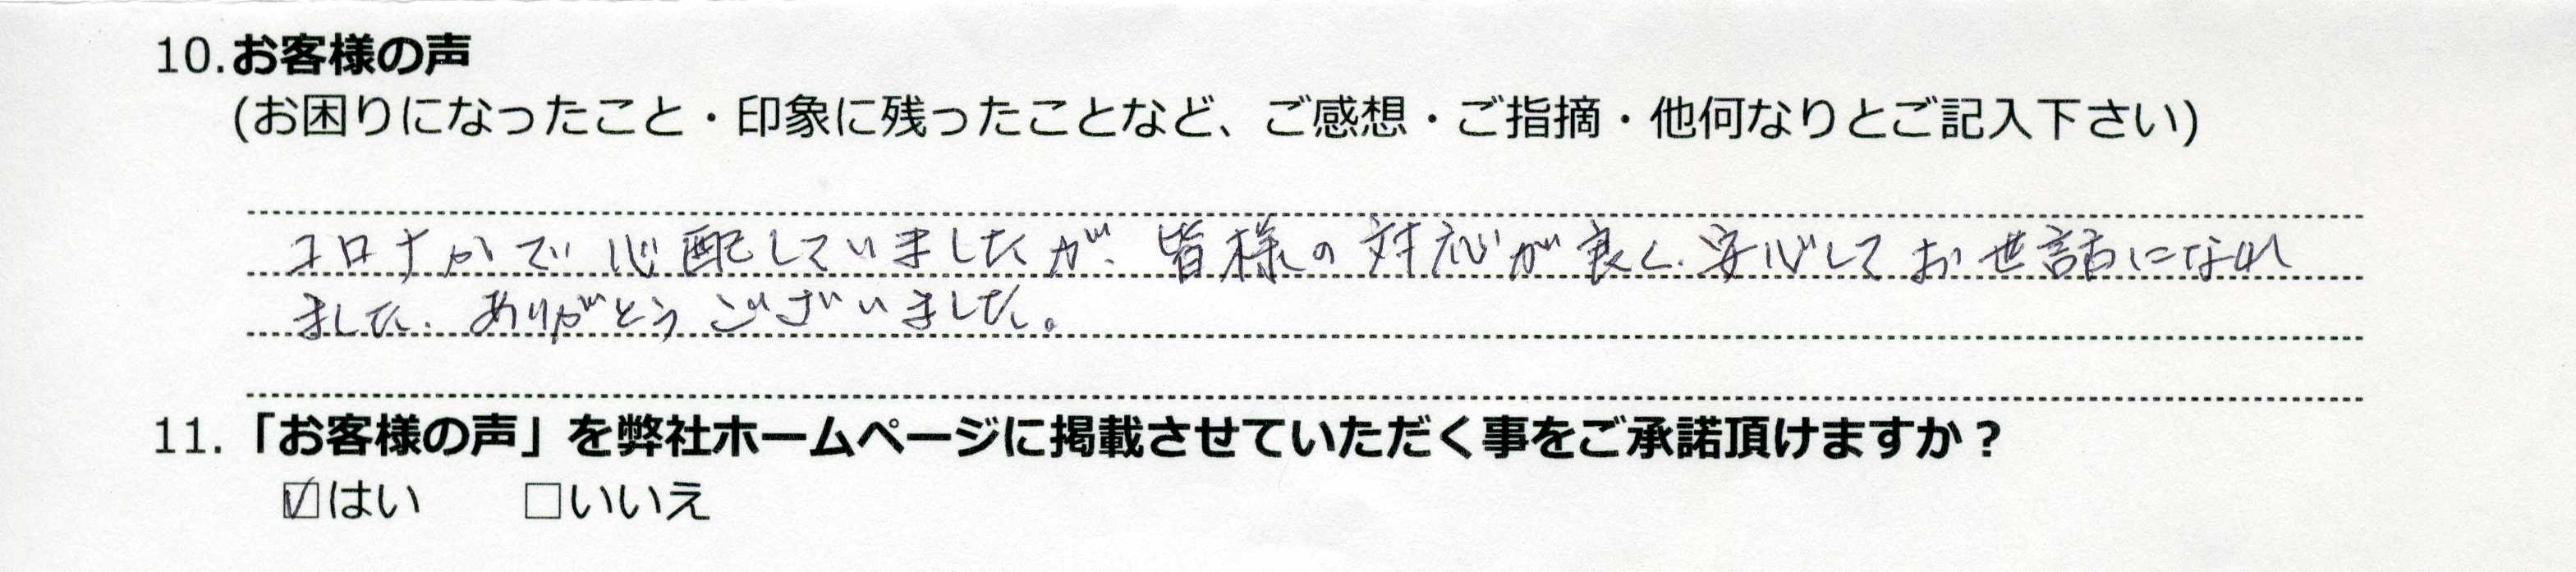 10.お客様の声
(お困りになったこと・印象に残ったことなど、ご感想・ご指摘・他何なりとご記入下さい)
コロナかで心配していましたが、皆様の対応が良く、安心してお世話になれ
ました。ありがとうございました。
11.「お客様の声」を弊社ホームページに掲載させていただく事をご承諾頂けますか？
☑はい □いいえ